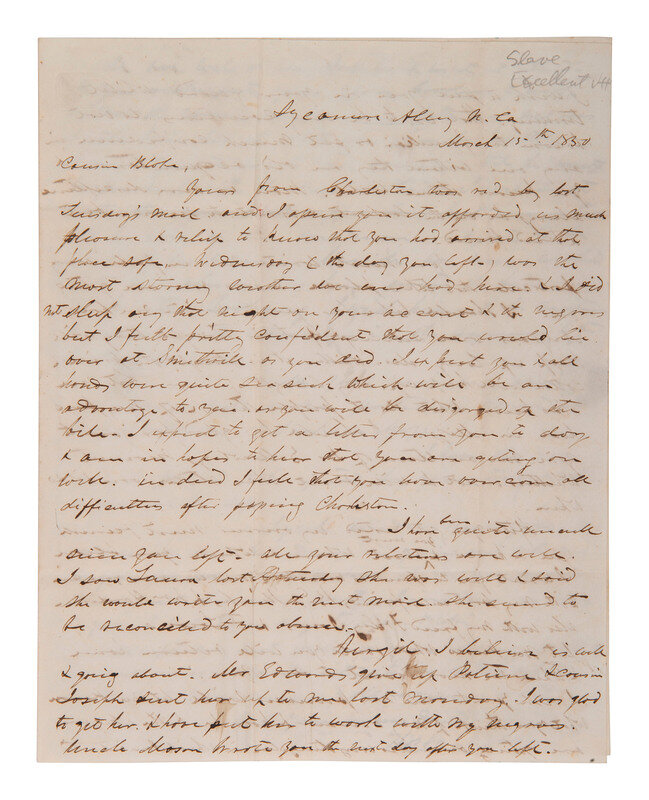 Slave
Excellent
Sycamore Alley N. Ca
March 15th 1850
Cousin Blake,
Yours from Charleston was recd by last
Tuesday's mail and I assure you it afforded us much
pleasure & relief to know that you had arrived at that
place safe. Wednesday (the day you left) was the
most stormy weather we ever had here. & I did
not sleep any that night on your account & the negroes
but I felt pretty confident that you would lie
over at Smithvile as you did. I expect you & all
hands were quite sea sick which will be an
advantage to you as you will be disgorged of the
bile. I expect to get a letter from you to day
& am in hopes to hear that you are geting on
well. in deed I feel that you have over come all
difficulties after passing Charleston.
I have been quite unwell
since you left. all your relatives are well.
I saw Laura last Saturday she was well & said
she would write you the next mail. she seemed to
be reconciled to you absence.
Virgil I believe is well
& going about. Mr Edwards give up Patience & cousin
Joseph sent her up to me last monday. I was glad
to get her. & have put her to work with my negroes.
Uncle Mason wrote you the next day after you left.